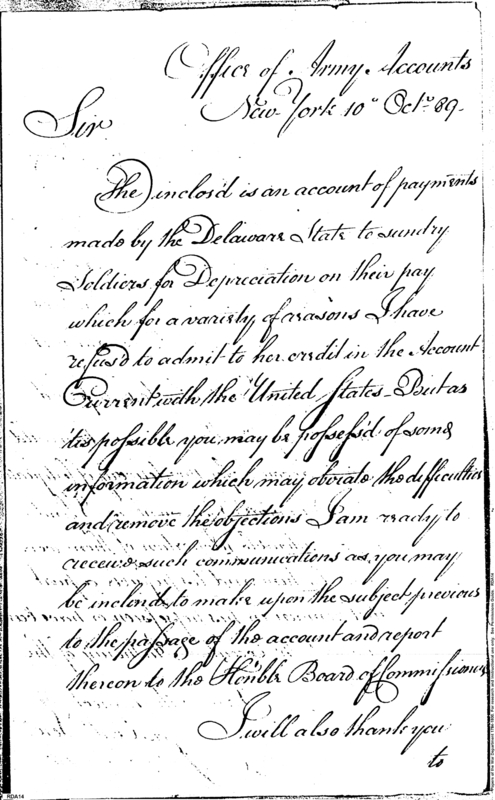 Office of Army Accounts
New-York 10th Octr 89.
Sir
The inclos'd is an account of payments
made by the Delaware State to sundry
Soldiers for Depreciation on their pay
which for a variety of reasons I have
refus'd to admit to her credit in the Account
Current with the United States - But as
'tis possible you may be possess'd of some
information which may obviate the difficulties
and remove the objections I am ready to
receive such communications as you may
be inclined to make upon the subject previous
to the passage of the account and report
thereon to the Honble Board of Commissioners
I will also thank you
to
RDA14